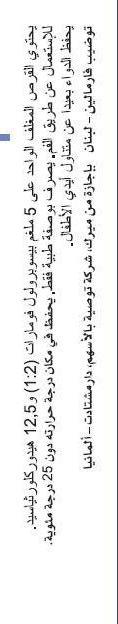 يحتوي القرص المغلف الواحد على 5 ملغم بيسوبرولول فومارات (1:2) و 12,5 هيدروكلورثيازيد.
للاستعمال عن طريق الفم. يصرف بوصفة طبية فقط. يحفظ في مكان درجة حرارته دون 25 درجة مئوية.
يحفظ الدواء بعيدا عن متناول أيدي الأطفال.
توضيب فارمالين - لبنان بإجازة من ميرك، شركة توصية بالأسهم، دارمشتادت - ألمانيا